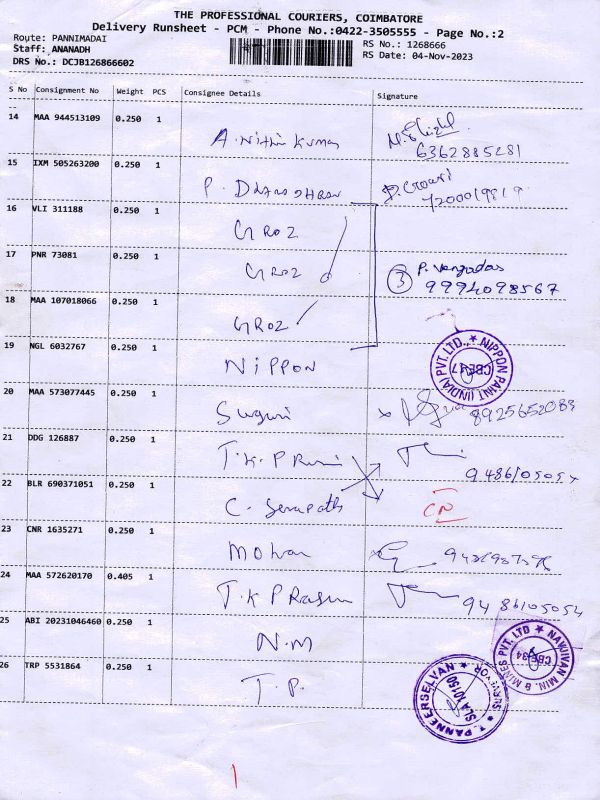 THE PROFESSIONAL COURIERS, COIMBATORE
Delivery Runsheet - PCM - Phone No.:0422-3505555 - Page No.:2
Route: PANNIMADAI
RS No.: 1268666
Staff: ANANADH
RS Date: 04-Nov-2023
DRS No.: DCJB126866602
S No Consignment No Weight PCS Consignee Details Signature
14 MAA 944513109 0.250 1
A. Nithin Kumar
6362885281
15 IXM 505263200 0.250 1
P.
16 VLI 311188 0.250 1
GROZ
17 PNR 73081 0.250 1
GROZ
3 P. Vengadas
9994098567
18 MAA 107018066 0.250 1
GROZ
19 NGL 6032767 0.250 1
NIPPON
NIPPON PAINT (INDIA) PVT. LTD.,
CBE-17
20 MAA 573077445 0.250 1
Suguri
8925652083
21 DDG 126887 0.250 1
T. K. P
22 BLR 690371051 0.250 1
C.
CN
23 CNR 1635271 0.250 1
Mohan
24 MAA 572620170 0.405 1
T. K P
94 86105054
25 ABI 20231046460 0.250 1
N.M
NAKJIVAN MIN. & MINES PVT. LTD
CBE-34
26 TRP 5531864 0.250 1
T. P.
T. PANNEERSELVAN
SURVEYOR
SLA 10150